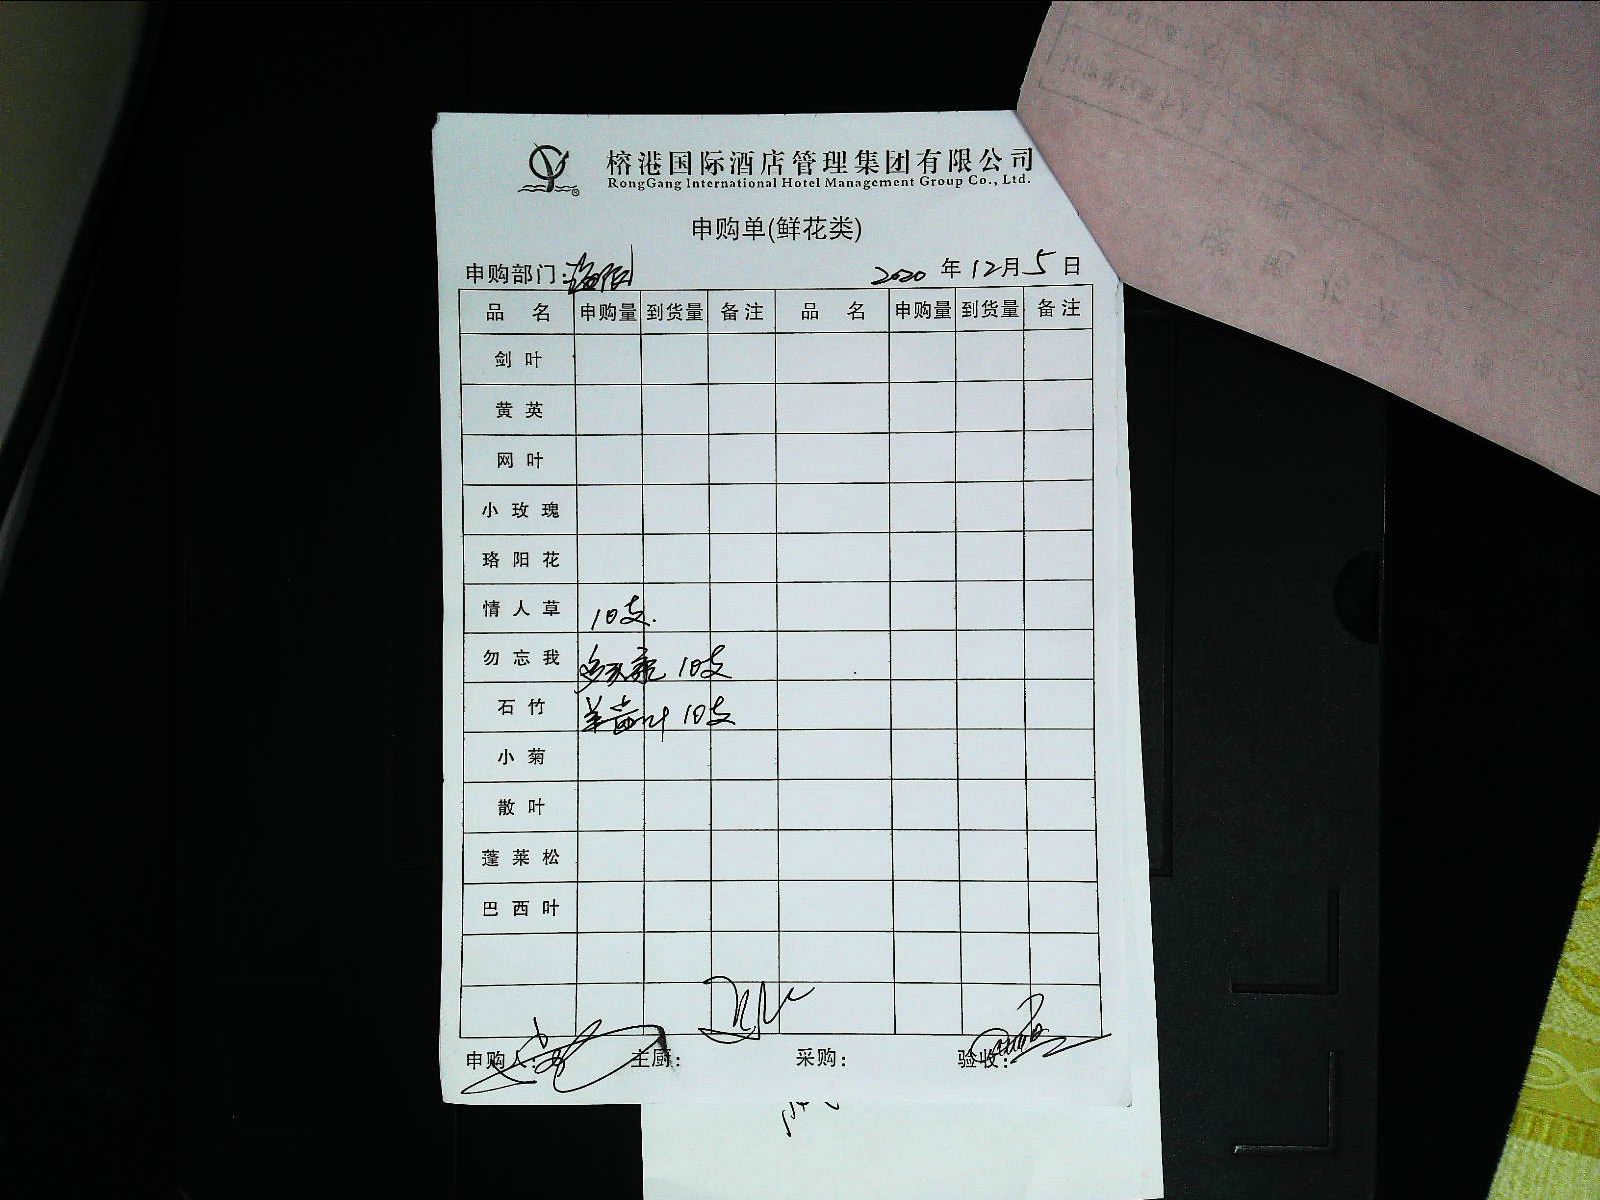 榕港国际酒店管理集团有限公司
RongGang International Hotel Management Group Co., Ltd.
申购单(鲜花类)
申购部门: 2020 年 12月 5 日
品 名 申购量 到货量 备注 品 名 申购量 到货量 备注
剑叶
黄英
网叶
小玫瑰
珞阳花
情人草 10支.
勿忘我 10支
石竹 10支
小菊
散叶
蓬莱松
巴西叶
申购人: 主厨: 采购: 验收: